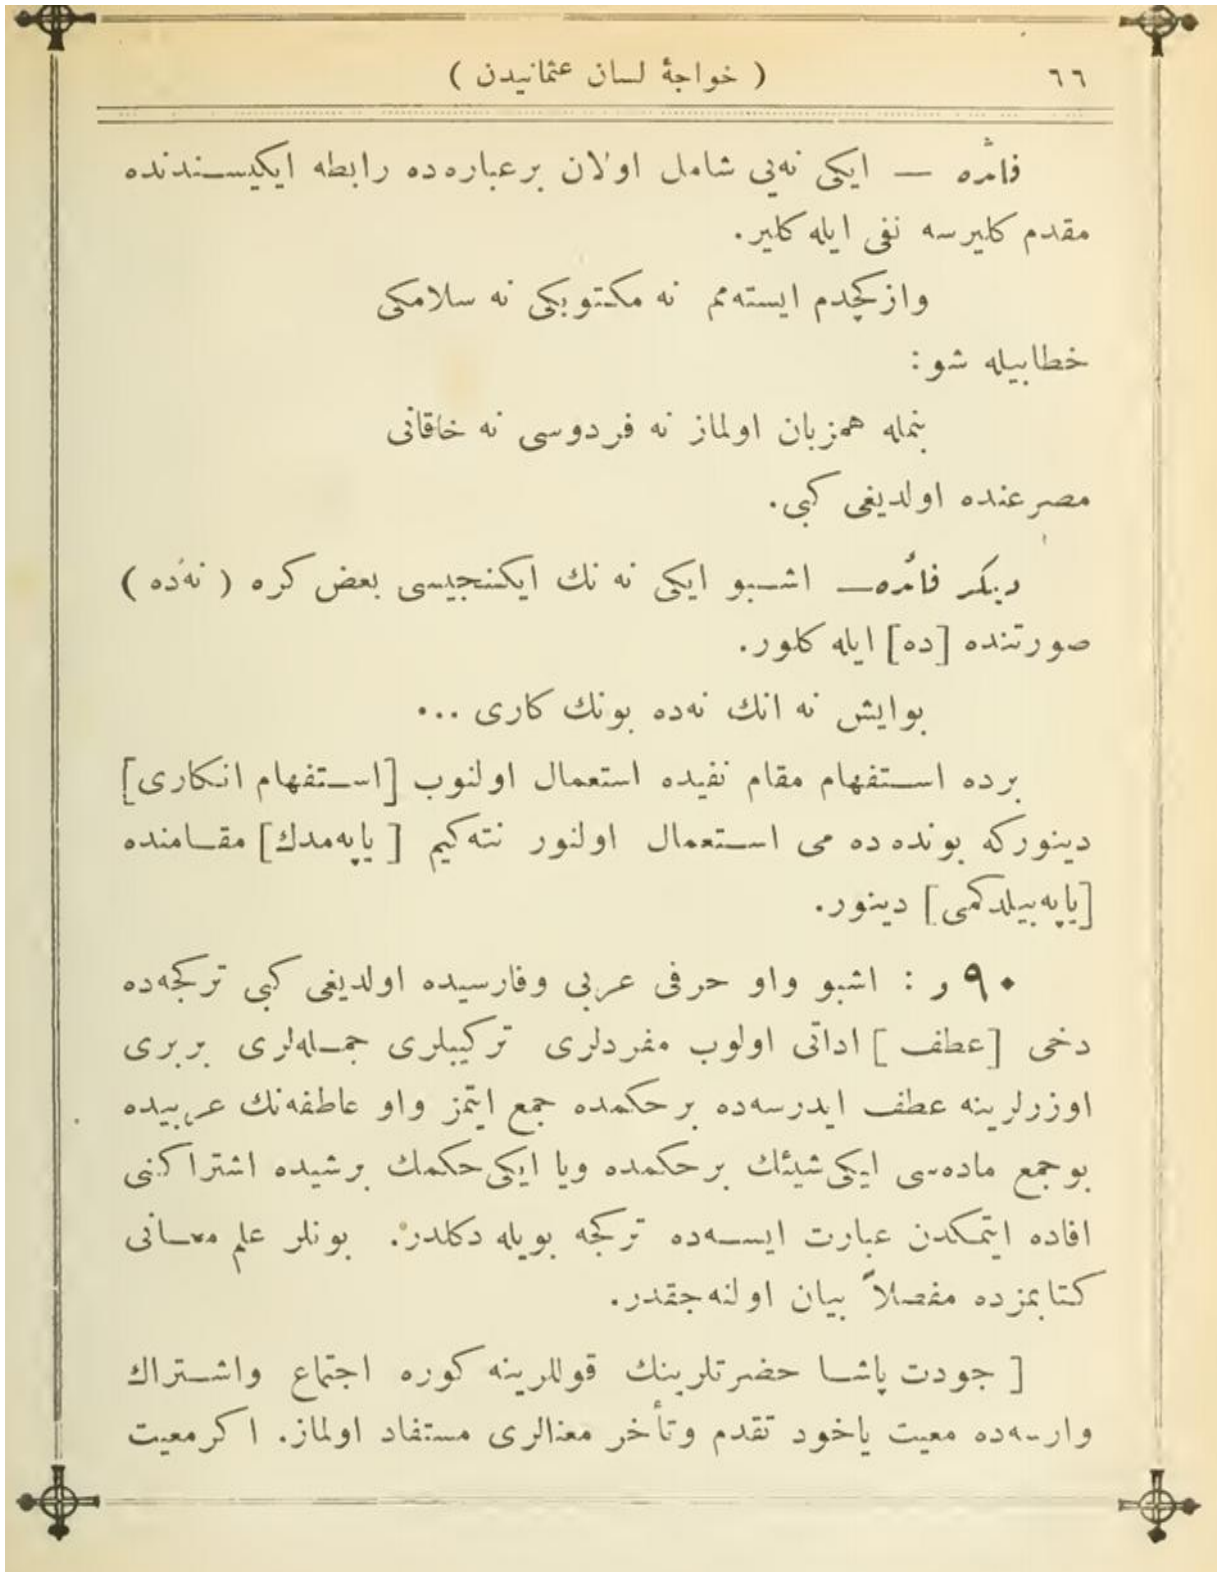 ٦٦
( خواجهٔ لسان عثمانیدن )
فائده — ایکی نه‌یی شامل اولان برعباره‌ده رابطه ایکیسندنده
مقدم کلیرسه نفی ایله کلیر.
وازکچدم ایسته‌مم نه مکتوبکی نه سلامکی
خطابیله شو :
بنمله همزبان اولماز نه فردوسی نه خاقانی
مصرعنده اولدیغی کبی.
دیکر فائده — اشبو ایکی نه نك ایکنجیسی بعض کره ( نه‌ده )
صورتنده [ده] ایله کلور.
بوایش نه انك نه‌ده بونك کاری ...
برده استفهام مقام نفیده استعمال اولنوب [استفهام انکاری]
دینورکه بونده ده می استعمال اولنور نته‌کیم [یاپه‌مدك] مقامنده
[یاپه‌بیلدکمی] دینور.
٩٠ و : اشبو واو حرفی عربی وفارسیده اولدیغی کبی ترکجه‌ده
دخی [عطف] اداتی اولوب مفردلری ترکیبلری جمله‌لری بربری
اوزرلرینه عطف ایدرسه‌ده برحکمده جمع ایتمز واو عاطفه‌نك عربیده
بوجمع ماده‌سی ایکی شیئك برحکمده ویا ایکی حکمك برشیده اشتراکنی
افاده ایتمکدن عبارت ایسه‌ده ترکجه بویله دکلدر. بونلر علم معانی
کتابمزده مفصلاً بیان اولنه‌جقدر.
[ جودت پاشا حضرتلرینك قوللرینه کوره اجتماع واشتراك
وارسه‌ده معیت یاخود تقدم وتأخر معنالری مستفاد اولماز. اکرمعیت